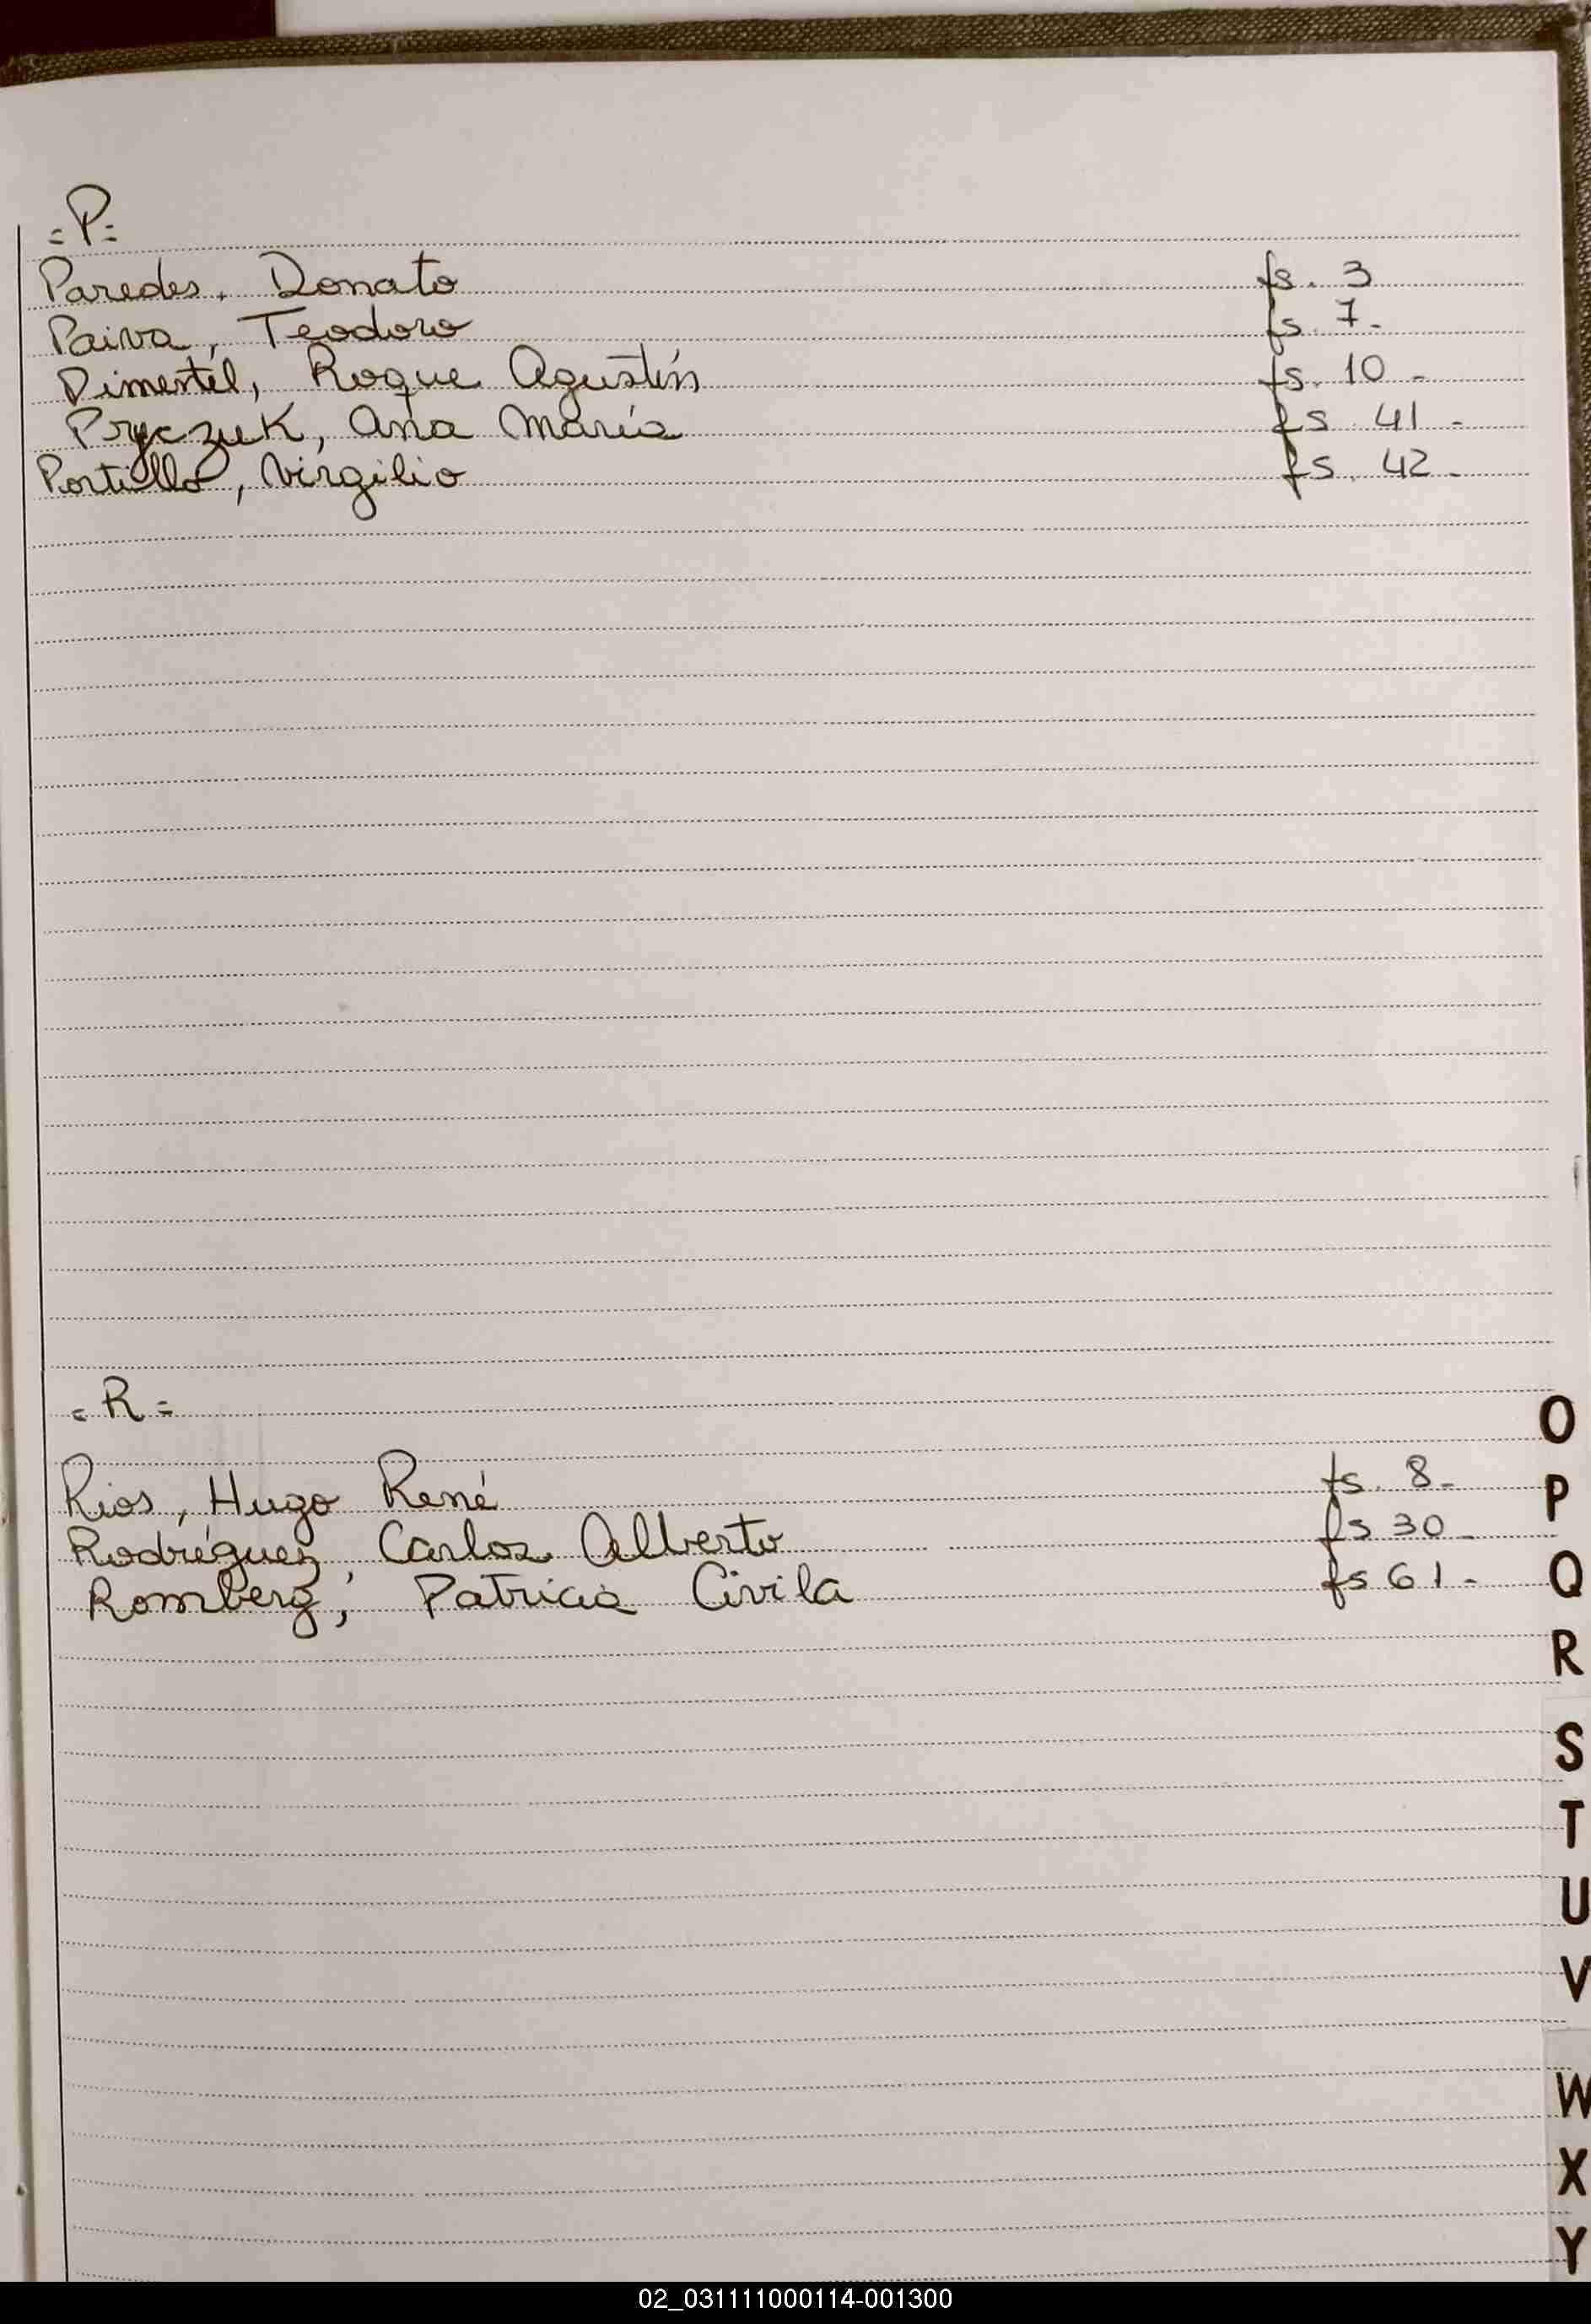 =P=
Paredes, Donato fs. 3
Paiva, Teodoro fs. 7-
Pimentel, Roque Agustín fs. 10-
Pryczuk, Ana María fs. 41-
Portillo, Virgilio fs. 42-
=R=
Rios, Hugo René fs. 8-
Rodríguez, Carlos Alberto fs 30-
Romberg, Patricia Civila fs 61-
O
P
Q
R
S
T
U
V
W
X
Y
02_031111000114-001300